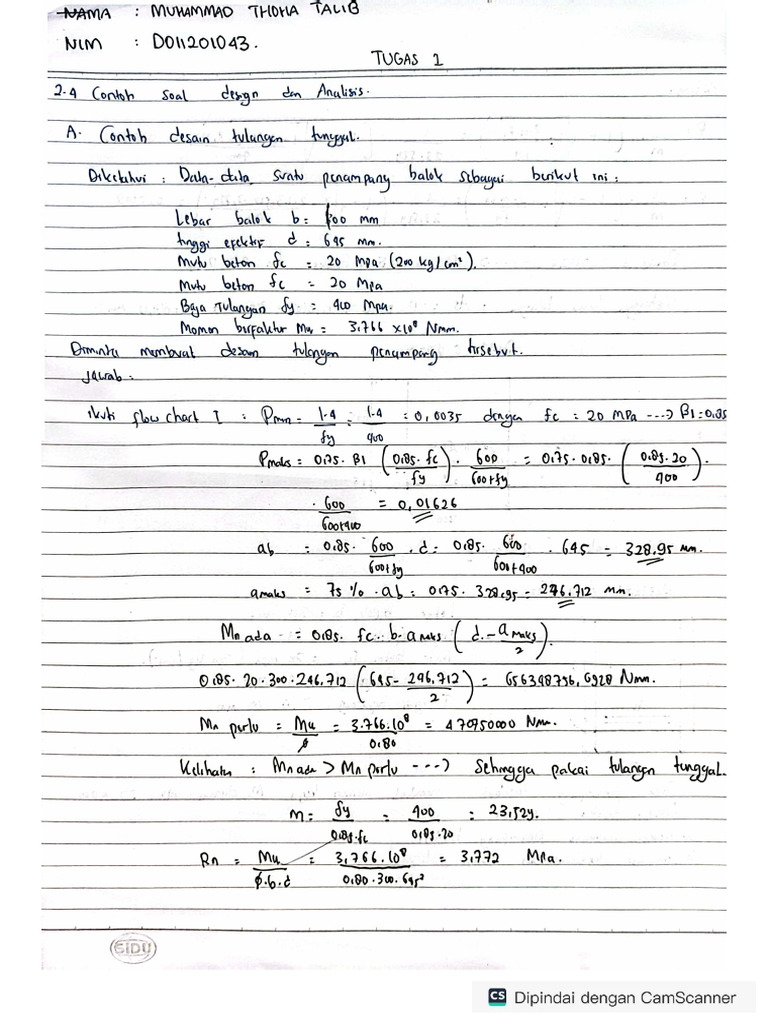 NAMA : MUHAMMAD THOHA TALIB
NIM : D011201043.
TUGAS 1
2.4 Contoh Soal design dan Analisis.
A. Contoh desain tulangan tunggal.
Diketahui : Data-data suatu penampang balok sebagai berikut ini :
Lebar balok b = 300 mm
tinggi efektif d = 645 mm.
Mutu beton fc = 20 Mpa (200 kg/cm²).
Mutu beton fc = 20 Mpa
Baja Tulangan fy = 400 Mpa.
Momen berfaktor Mu = 3.766 x10⁸ Nmm.
Diminta membuat desain tulangan penampang tersebut.
Jawab :
ikuti flow chart I : Pmin = 1.4/fy = 1.4/400 = 0,0035 dengan fc = 20 MPa ---> β1=0.85
Pmaks = 0.75. β1 (0.85. fc/fy) . 600/600+fy = 0.75. 0.85. (0.85. 20/400).
. 600/600+400 = 0,01626
ab = 0.85. 600/600+fy .d = 0.85. 600/600+400 . 645 = 328.95 mm.
amaks = 75 % . ab = 0.75. 328.95 = 246.712 mm.
Mn ada = 0.85. fc. b. amaks (d - amaks/2).
0.85. 20. 300. 246.712 (645 - 246.712/2) = 656398796,6928 Nmm.
Mn perlu = Mu/φ = 3.766.10⁸/0.80 = 470750000 Nmm.
Kelihatan : Mn ada > Mn perlu ---> Sehingga pakai tulangan tunggal.
M = fy/0.85.fc = 400/0.85.20 = 23,529.
Rn = Mu/φ.b.d = 3,766.10⁸/0.80.300.645² = 3.772 Mpa.
SIDU
CS Dipindai dengan CamScanner